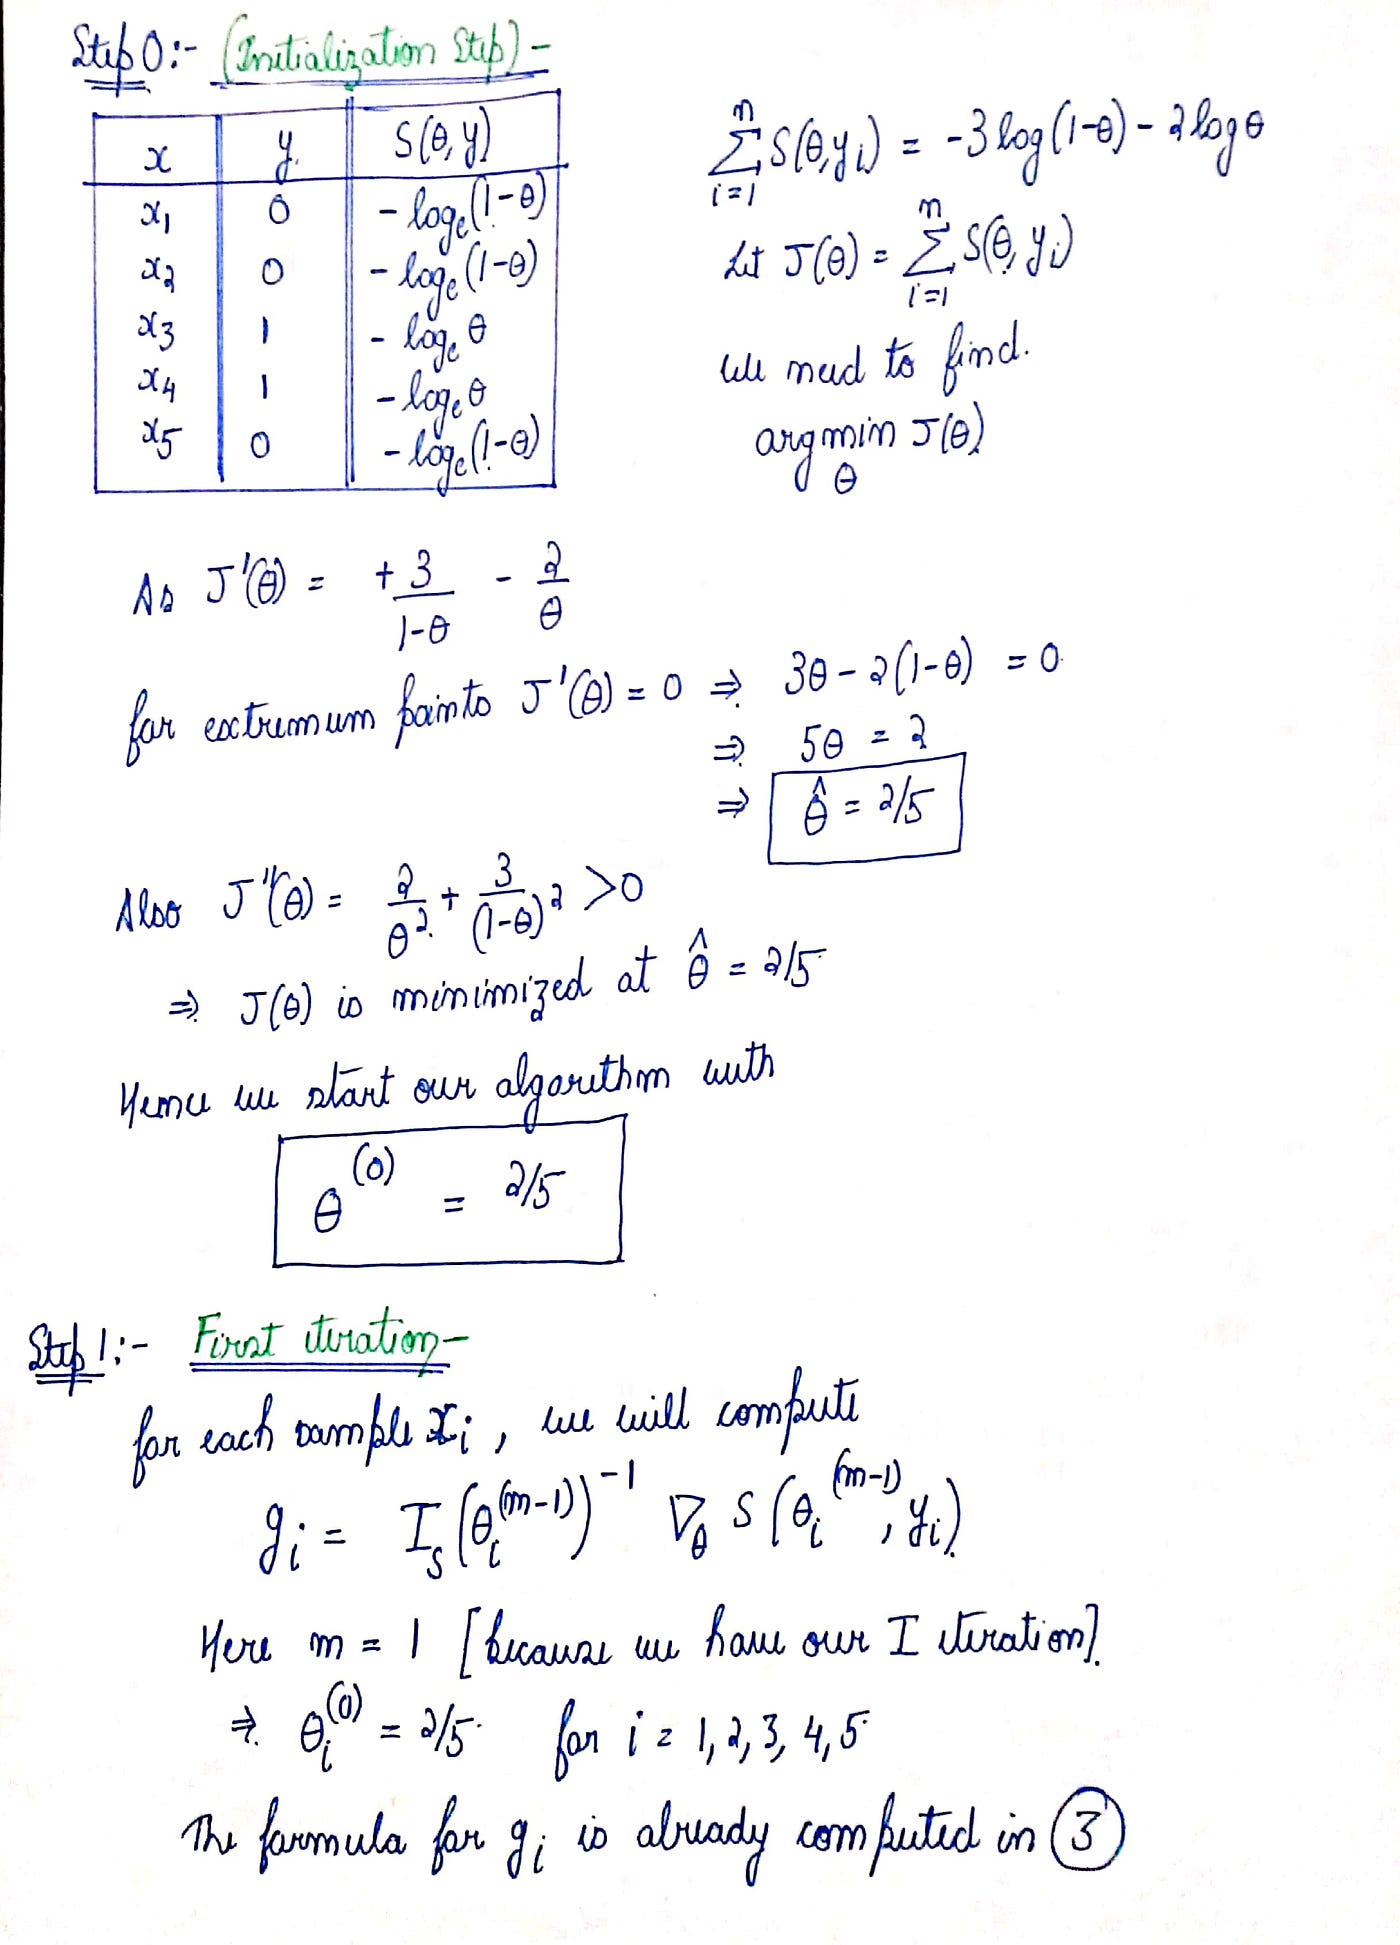 Step 0:- (Initialization Step) -
x y S(θ, y)
x₁ 0 - logₑ(1-θ)
x₂ 0 - logₑ(1-θ)
x₃ 1 - logₑ θ
x₄ 1 - logₑ θ
x₅ 0 - logₑ(1-θ)
n∑i=1 S(θ, yᵢ) = -3 log(1-θ) - 2 log θ
Let J(θ) = n∑i=1 S(θ, yᵢ)
We need to find.
argmin J(θ)
θ
As J'(θ) = +3/(1-θ) - 2/θ
for extremum points J'(θ) = 0 ⇒ 3θ - 2(1-θ) = 0
⇒ 5θ = 2
⇒ θ̂ = 2/5
Also J''(θ) = 2/θ² + 3/(1-θ)² > 0
⇒ J(θ) is minimized at θ̂ = 2/5
Hence we start our algorithm with
θ⁽⁰⁾ = 2/5
Step 1:- First iteration -
for each sample xᵢ, we will compute
gᵢ = I_S(θᵢ^(m-1))⁻¹ ∇_θ S(θᵢ^(m-1), yᵢ)
Here m = 1 [because we have our I iteration].
⇒ θᵢ⁽⁰⁾ = 2/5 for i = 1, 2, 3, 4, 5
The formula for gᵢ is already computed in ③